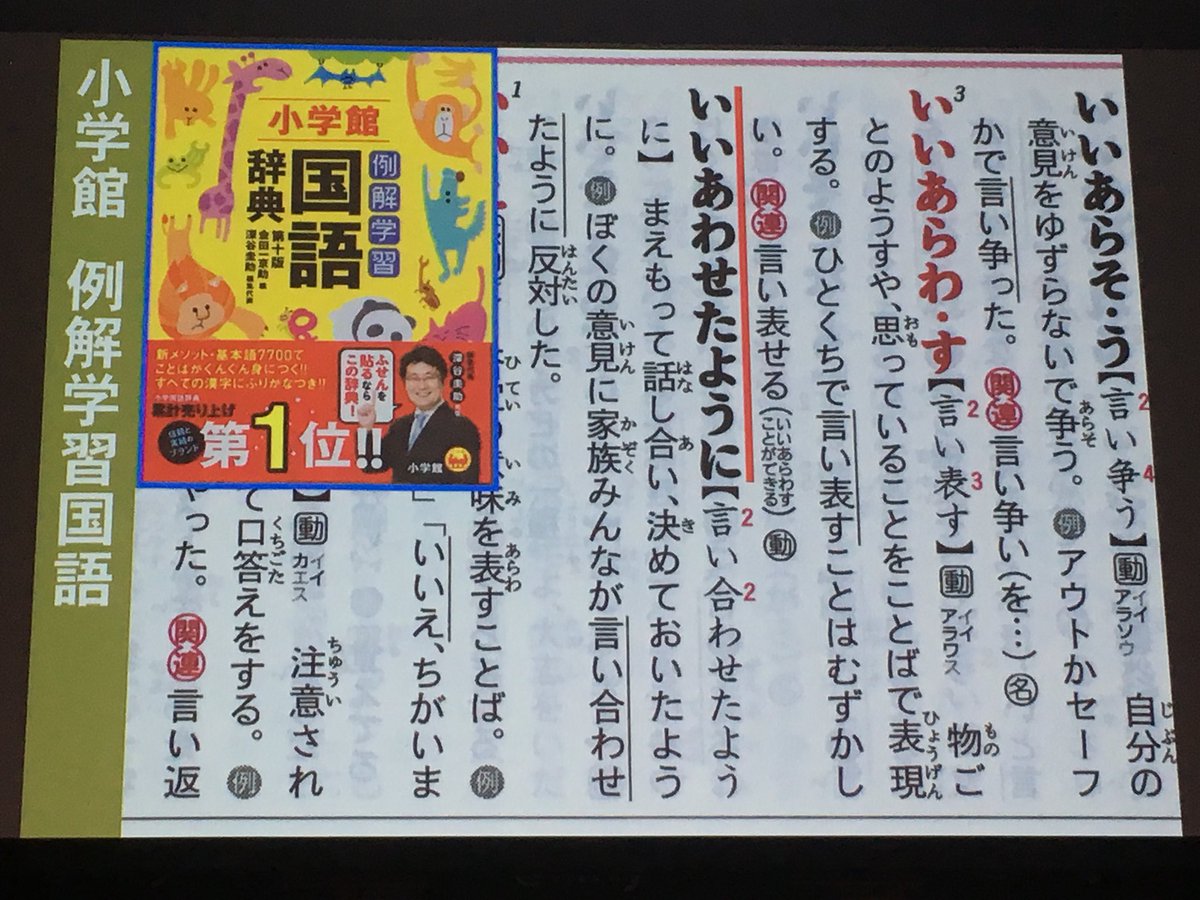 小学館 例解学習国語
小学館
例解学習
国語
辞典
第十版
金田一京助 編
深谷圭助 編集代表
新メソット・基本語7700で
ことばがぐんぐん身につく!!
すべての漢字にふりがなつき!!
小学国語辞典
累計売り上げ
第1位!!
信頼と
実績の
ブランド
ふせんを
貼るなら
この辞典!
深谷圭助
小学館
いいあらそ・う【言い争う】動 イイアラソウ 自分の
意見をゆずらないで争う。例 アウトかセーフ
かで言い争った。関連 言い争い(を…)名
3 いいあらわ・す【言い表す】動 イイアラワス 物ご
とのようすや、思っていることをことばで表現
する。例 ひとくちで言い表すことはむずかし
い。関連 言い表せる(いいあらわすことができる)動
いいあわせたように【言い合わせたよう
に】 まえもって話し合い、決めておいたよう
に。例 ぼくの意見に家族みんなが言い合わせ
たように反対した。
味を表すことば。例
」「いいえ、ちがいま
】動 イイカエス 注意され
て口答えをする。例
った。関連 言い返